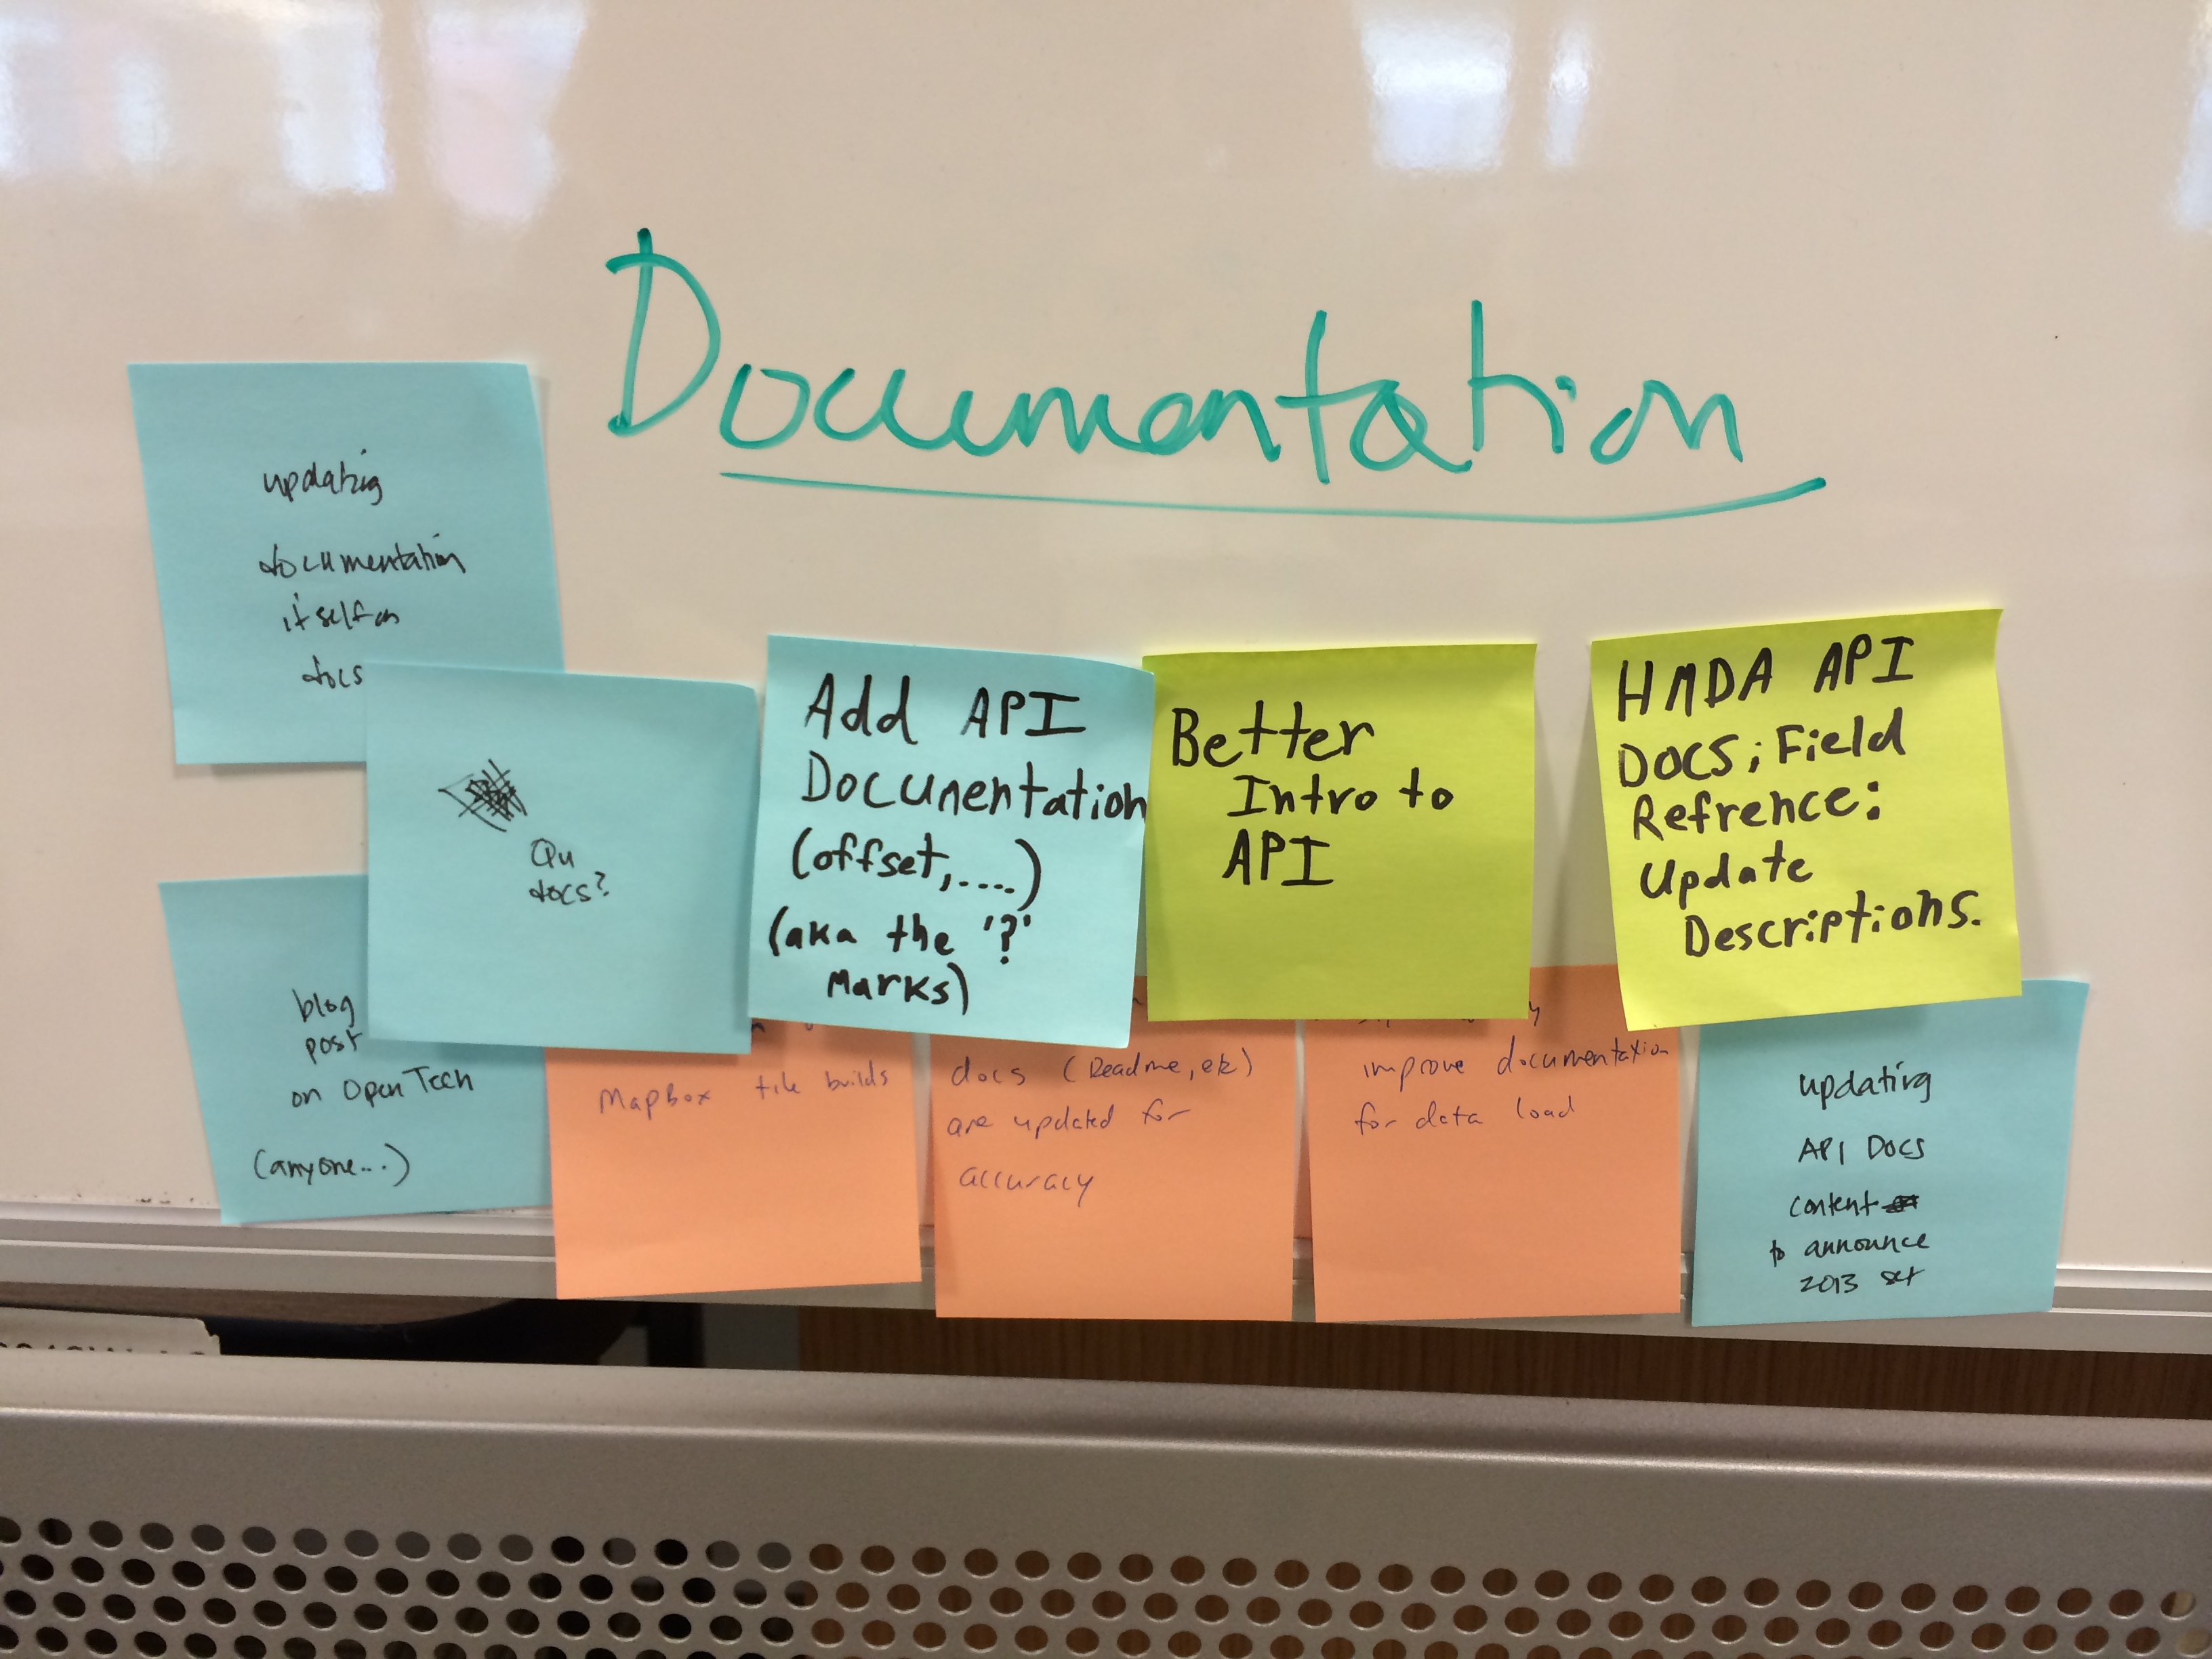 Documentation
updating
documentation
itself on
docs
Qu
docs?
Add API
Documentation
(offset,....)
(aka the '?'
Marks)
Better
Intro to
API
HMDA API
DOCS; Field
Refrence:
Update
Descriptions.
blog
post
on OpenTech
(anyone...)
Mapbox tile builds
docs (Readme, etc)
are updated for
accuracy
improve documentation
for data load
updating
API Docs
content
to announce
2013 set